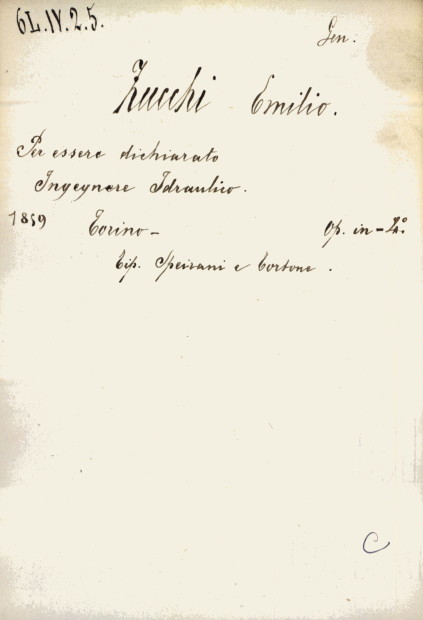 6L.IV.2.5.
Gen.
Zucchi Emilio.
Per essere dichiarato
Ingegnere Idraulico.
1859 Torino - Op. in-4°.
Tip. Speirani e Tortone.
C